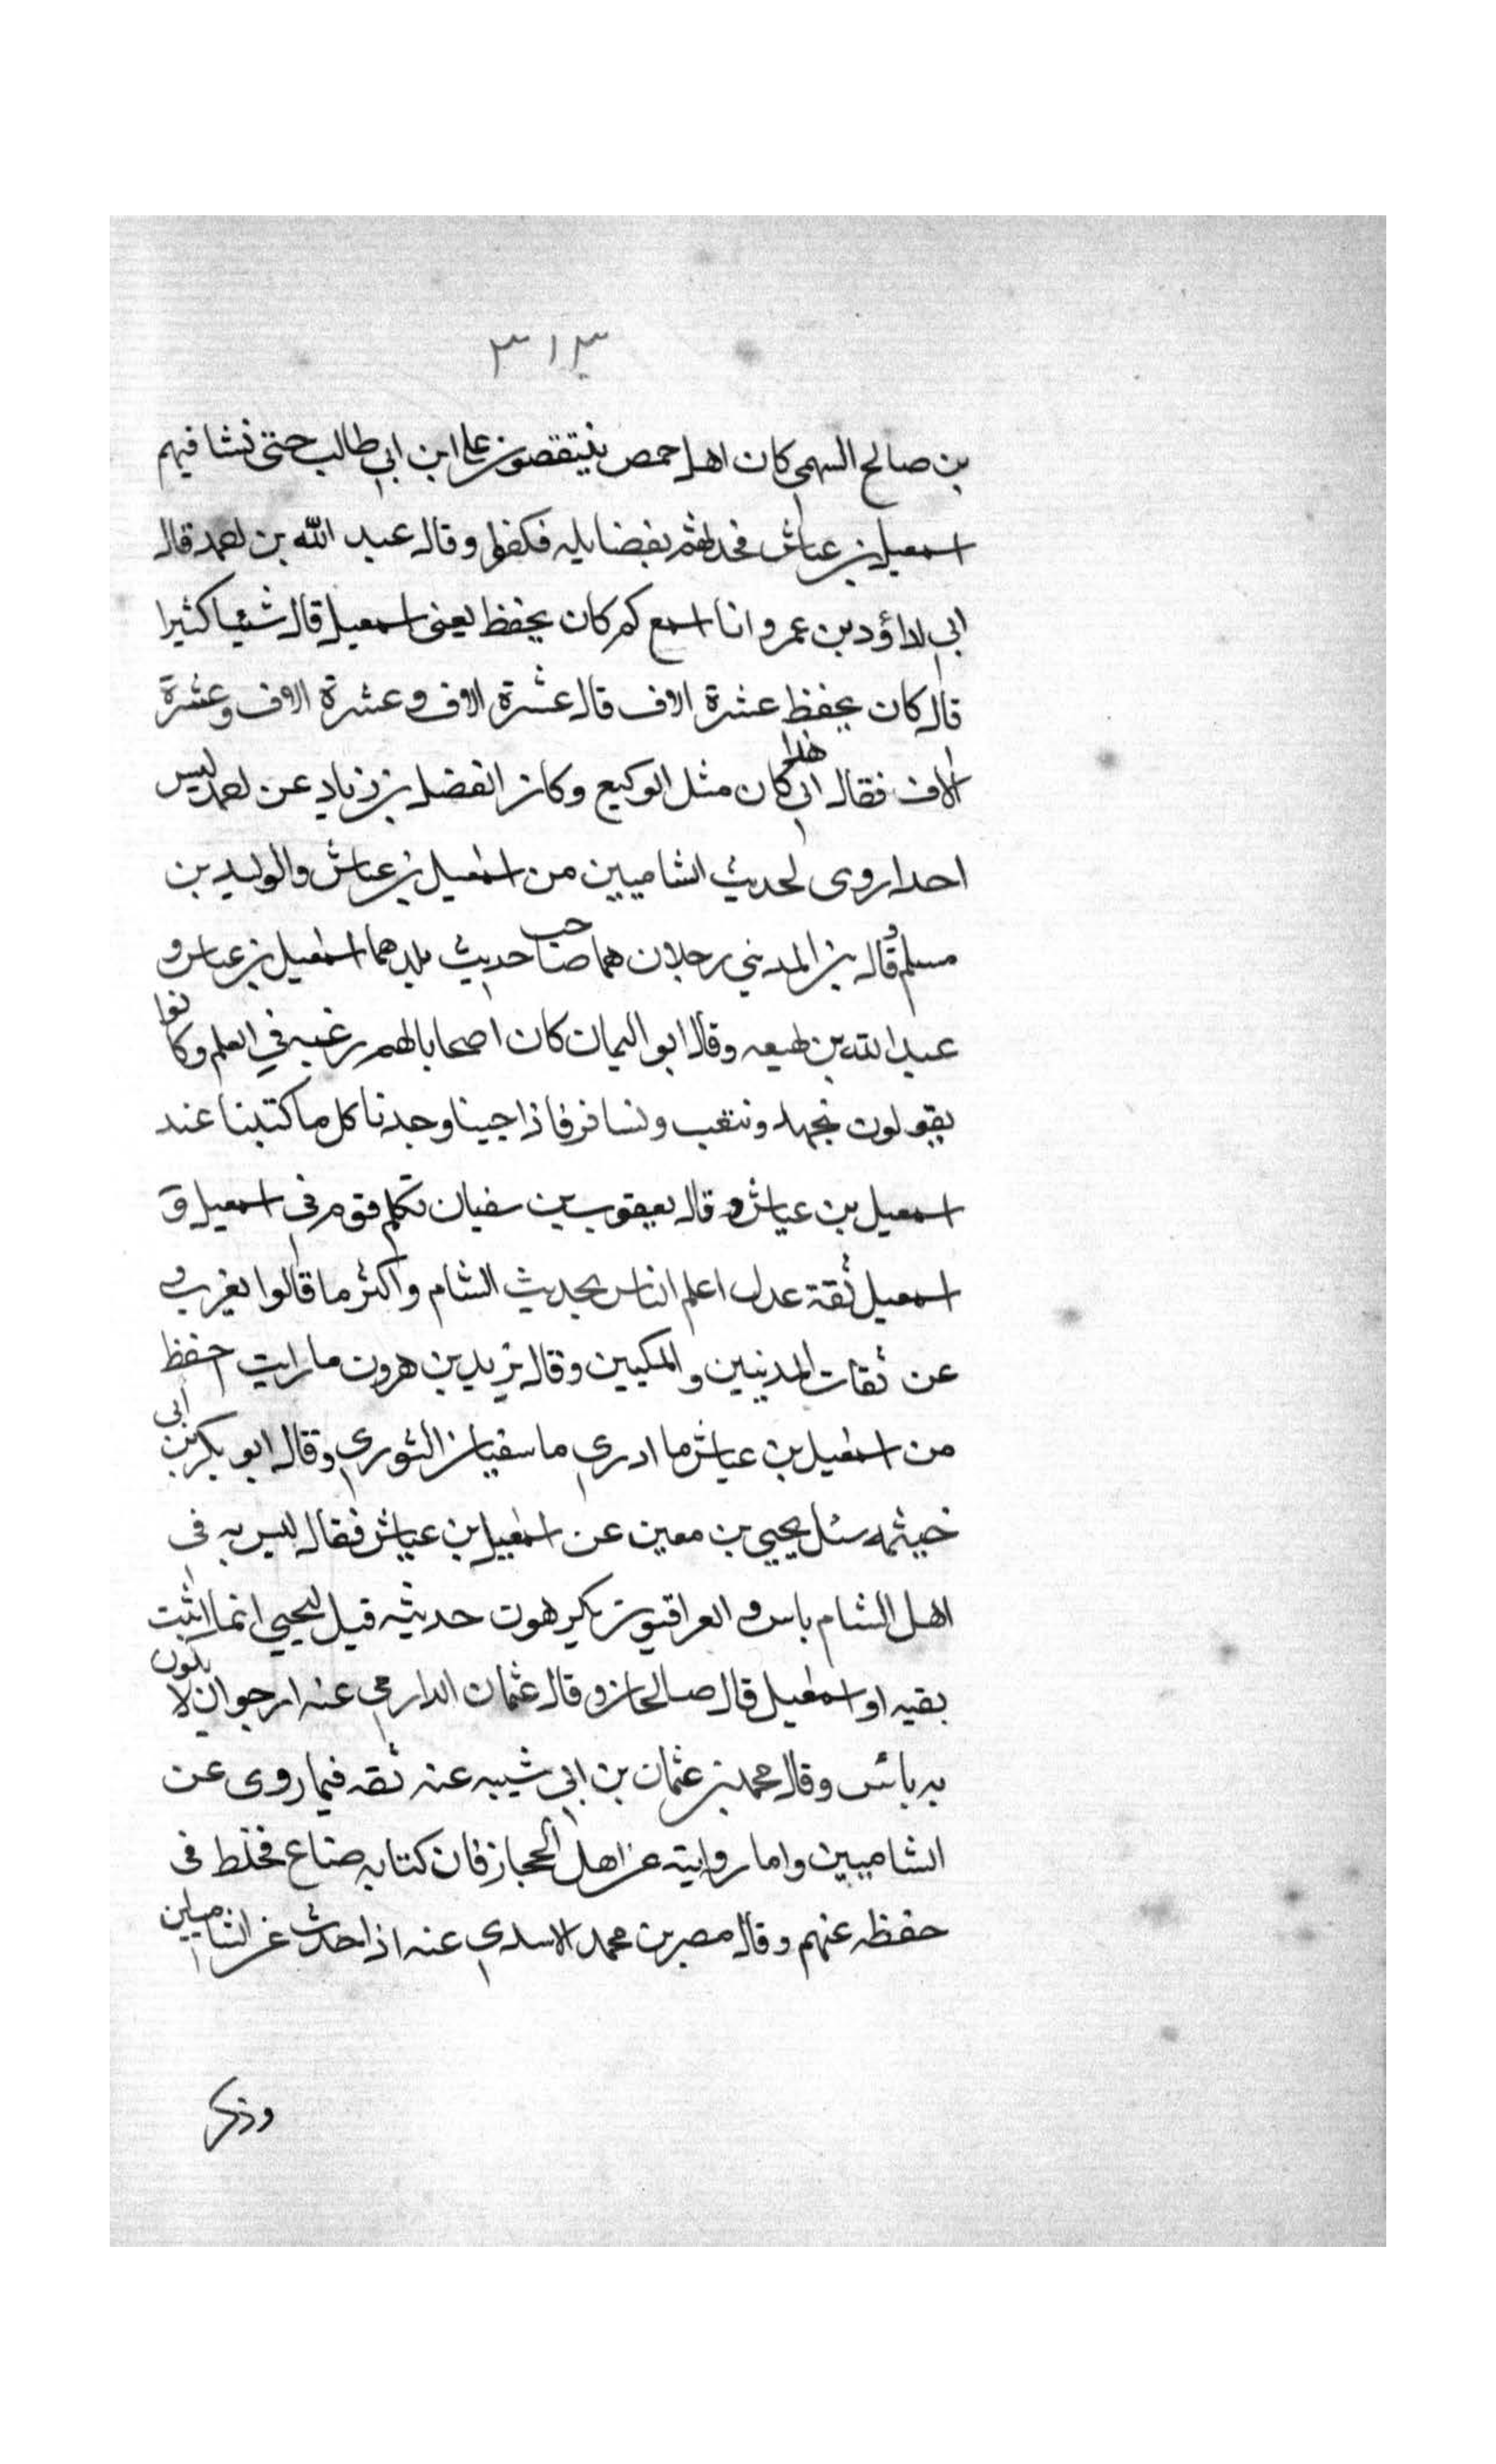 ٣١٣
بن صالح السهمى كان اهل حمص ينتقصون على ابن ابى طالب حتى نشا فيهم
اسمعيل بن عياش فحدثهم بفضايله فكفوا وقال عبد الله بن احمد قال
ابى لداؤد بن عمرو انا اسمع كم كان يحفظ يعنى اسمعيل قال شيئا كثيرا
قال كان يحفظ عشرة الاف قال عشرة الاف وعشرة الاف وعشرة
الاف فقال ابى هذا كان مثل الوكيع وكان الفضل بن زياد عن احمد ليس
احدا روى لحديث الشاميين من اسمعيل بن عياش والوليد بن
مسلم وقال بن المدينى رجلان هما صاحب حديث بلدهما اسمعيل بن عياش و
عبد الله بن لهيعه وقال ابو اليمان كان اصحابا لهم رغبه في العلم وكانوا
يقولون نجهد ونتعب ونسافر فاذا جينا وجدنا كل ما كتبنا عند
اسمعيل بن عياش وقال يعقوب بن سفيان تكلم قوم فى اسمعيل و
اسمعيل ثقة عدل اعلم الناس بحديث الشام واكثر ما قالوا يغرب
عن ثقات المدنيين والمكيين وقال يزيد بن هرون ما رايت احفظ
من اسمعيل بن عياش ما ادرى ما سفيان الثورى وقال ابو بكر بن ابى
خيثمه سئل يحيى بن معين عن اسمعيل بن عياش فقال ليس به فى
اهل الشام باس والعراقيون يكرهون حديثه قيل ليحيى انما اثبت
بقيه او اسمعيل قال صالحان وقال عثمان الدارمى عنه ارجو ان لا يكون
به بائس وقال محمد بن عثمان بن ابى شيبه عنه ثقه فيما روى عن
الشاميين واما روايته عن اهل الحجاز فان كتابه ضاع فخلط فى
حفظه عنهم وقال مضر بن محمد الاسدى عنه اذا حدث عن الشاميين
وذكر